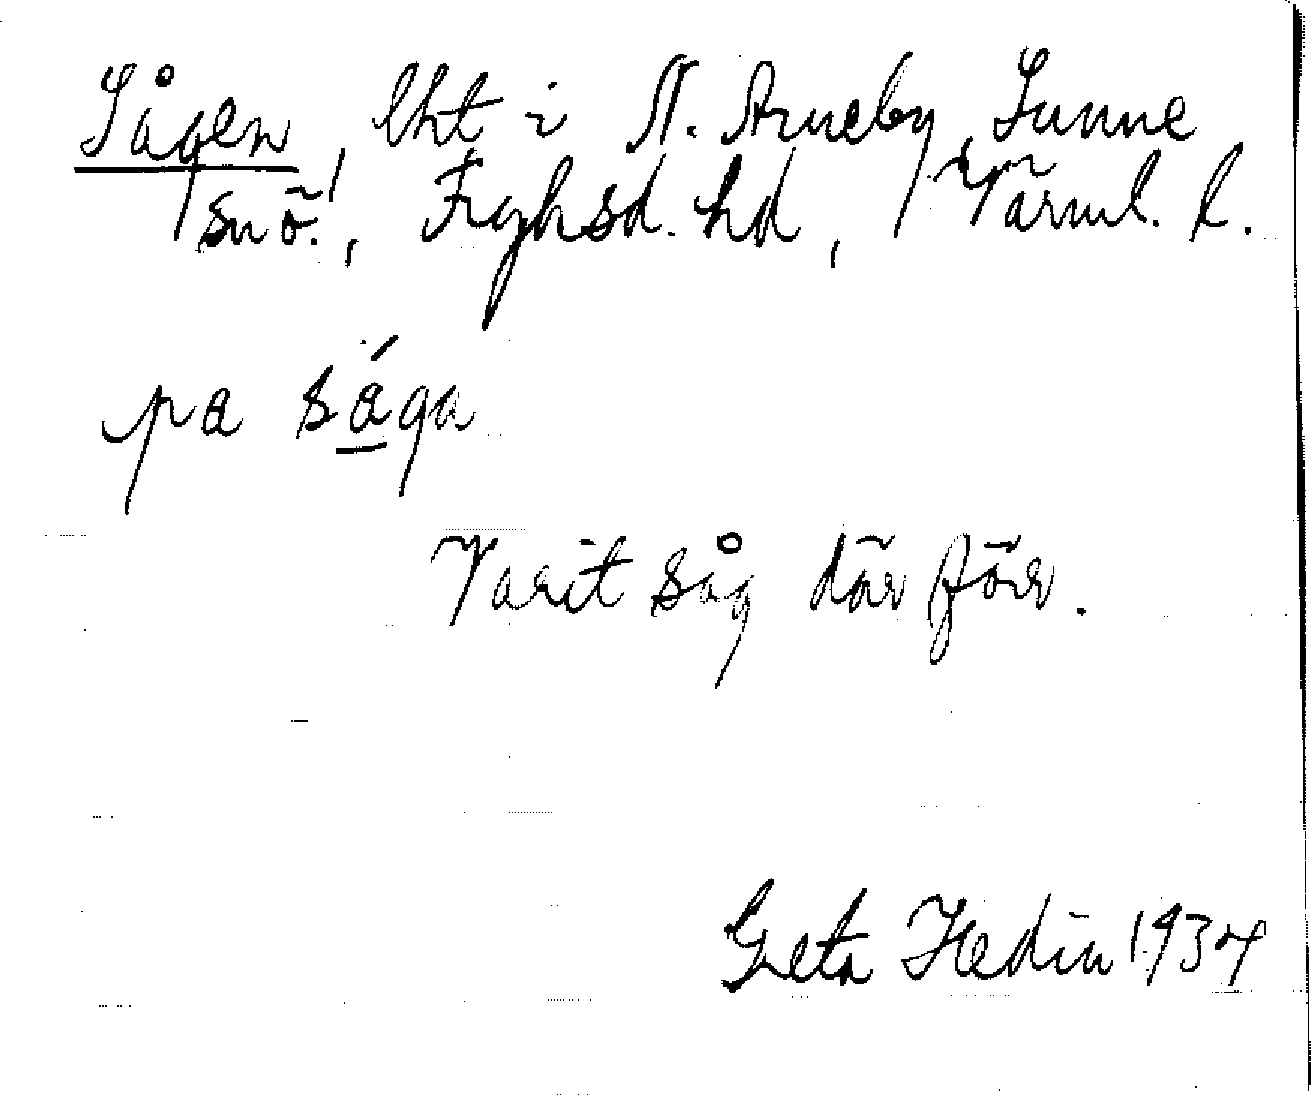 Sågen, lht i N. Årneby, Sunne
sn ö.!, Fryksd. hd, Värml. l.
pa sá̱ga
Varit såg där förr.
Greta Hedin 1934